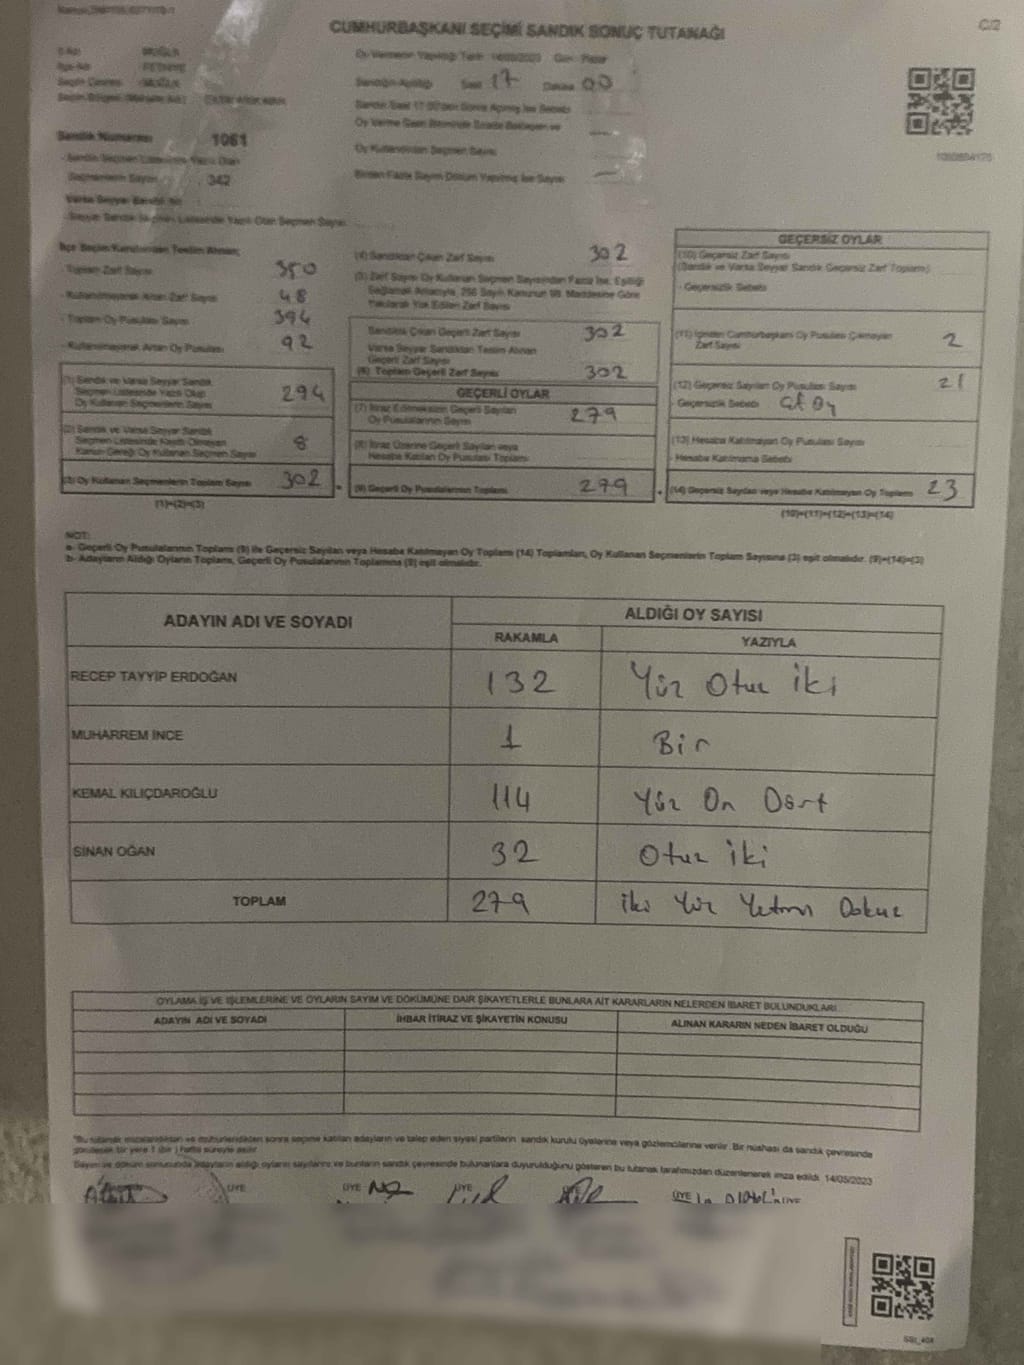 CUMHURBAŞKANI SEÇİMİ SANDIK SONUÇ TUTANAĞI
C/2
Oy Vermenin Yapıldığı Tarih 14/05/2023 Gün Pazar
Sandığın Açıldığı Saat 17 Dakika 00
MUĞLA
FETHİYE
Sandık Numarası 1061
Seçmenlerin Sayısı 342
Oy Kullandırılan Seçmen Sayısı
Birden Fazla Sayım Döküm Yapılmış İse Sayısı —
İlçe Seçim Kurulundan Teslim Alınan;
- Toplam Zarf Sayısı 350
- Kullanılmayarak Artan Zarf Sayısı 48
- Toplam Oy Pusulası Sayısı 394
- Kullanılmayarak Artan Oy Pusulası 92
(1) Sandık ve Varsa Seyyar Sandık
Seçmen Listesinde Yazılı Olup
Oy Kullanan Seçmenlerin Sayısı 294
(2) Sandık ve Varsa Seyyar Sandık
Seçmen Listesinde Kayıtlı Olmayan
Kanun Gereği Oy Kullanan Seçmen Sayısı 8
(3) Oy Kullanan Seçmenlerin Toplam Sayısı 302
(1)+(2)=(3)
(4) Sandıktan Çıkan Zarf Sayısı 302
(5) Zarf Sayısı Oy Kullanan Seçmen Sayısından Fazla İse, Eşitliği
Sağlamak Amacıyla, 298 Sayılı Kanunun 98. Maddesine Göre
Yakılarak Yok Edilen Zarf Sayısı
Sandıkta Çıkan Geçerli Zarf Sayısı 302
Varsa Seyyar Sandıktan Teslim Alınan
Geçerli Zarf Sayısı
(6) Toplam Geçerli Zarf Sayısı 302
GEÇERLİ OYLAR
(7) İtiraz Edilmeksizin Geçerli Sayılan
Oy Pusulalarının Sayısı 279
(8) İtiraz Üzerine Geçerli Sayılan veya
Hesaba Katılan Oy Pusulası Toplamı
(9) Geçerli Oy Pusulalarının Toplamı 279
GEÇERSİZ OYLAR
(10) Geçersiz Zarf Sayısı
(Sandık ve Varsa Seyyar Sandık Geçersiz Zarf Toplamı)
- Geçersizlik Sebebi
(11) İçinden Cumhurbaşkanı Oy Pusulası Çıkmayan
Zarf Sayısı 2
(12) Geçersiz Sayılan Oy Pusulası Sayısı 21
- Geçersizlik Sebebi Çift Oy
(13) Hesaba Katılmayan Oy Pusulası Sayısı
- Hesaba Katılmama Sebebi
(14) Geçersiz Sayılan veya Hesaba Katılmayan Oy Toplamı 23
(10)+(11)+(12)+(13)=(14)
NOT:
a- Geçerli Oy Pusulalarının Toplamı (9) ile Geçersiz Sayılan veya Hesaba Katılmayan Oy Toplamı (14) Toplamları, Oy Kullanan Seçmenlerin Toplam Sayısına (3) eşit olmalıdır. (9)+(14)=(3)
b- Adayların Aldığı Oyların Toplamı, Geçerli Oy Pusulalarının Toplamına (9) eşit olmalıdır.
ADAYIN ADI VE SOYADI
ALDIĞI OY SAYISI
RAKAMLA YAZIYLA
RECEP TAYYİP ERDOĞAN 132 Yüz Otuz İki
MUHARREM İNCE 1 Bir
KEMAL KILIÇDAROĞLU 114 Yüz On Dört
SİNAN OĞAN 32 Otuz İki
TOPLAM 279 İki Yüz Yetmiş Dokuz
OYLAMA İŞ VE İŞLEMLERİNE VE OYLARIN SAYIM VE DÖKÜMÜNE DAİR ŞİKAYETLERLE BUNLARA AİT KARARLARIN NELERDEN İBARET BULUNDUKLARI
ADAYIN ADI VE SOYADI İHBAR İTİRAZ VE ŞİKAYETİN KONUSU ALINAN KARARIN NEDEN İBARET OLDUĞU
*Bu tutanak imzalandıktan ve mühürlendikten sonra seçime katılan adayların ve talep eden siyasi partilerin sandık kurulu üyelerine veya gözlemcilerine verilir. Bir nüshası da sandık çevresinde
görülecek bir yere 1 (bir) hafta süreyle asılır.
Sayım ve döküm sonucunda adayların aldığı oyların sayılarını ve bunların sandık çevresinde bulunanlara duyurulduğunu gösteren bu tutanak tarafımızdan düzenlenerek imza edildi. 14/05/2023
ÜYE ÜYE ÜYE ÜYE ÜYE